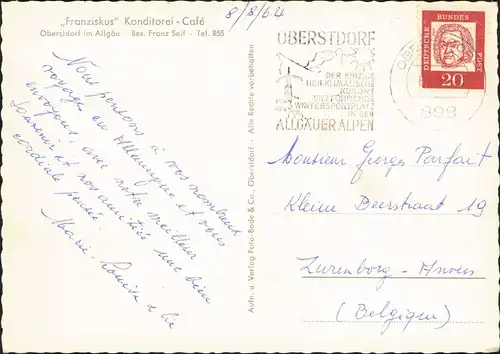 „Franziskus" Konditorei - Café
Oberstdorf im Allgäu Bes. Franz Seif - Tel. 855
8/8/64
Nous pensons à vos nombreux
voyages en Allemagne et vous
envoyons, avec notre meilleur
souvenir et nos amitiés une bien
cordiale pensée.
Marie-Louise & Cie
Aufn. u. Verlag Foto-Bade & Co., Oberstdorf - Alle Rechte vorbehalten
OBERSTDORF
DER EINZIGE
HEILKLIMATISCHE
KURORT
UND FÜHRENDE
WINTERSPORTPLATZ
IN DEN
ALLGÄUER ALPEN
898
DEUTSCHE BUNDESPOST
20
Monsieur Georges Parfait
Kleine Beerstraat 19
Zurenborg - Anvers
(Belgique)